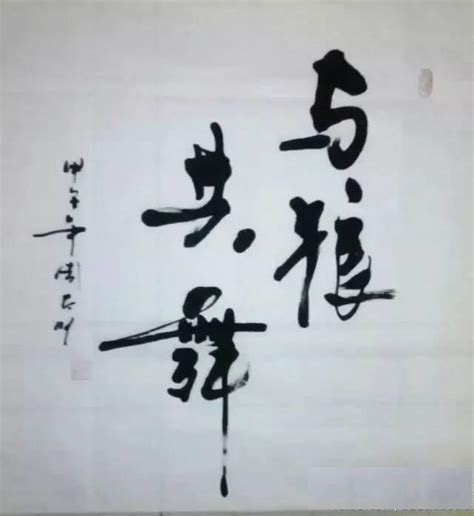 与狼
共舞
甲午年周